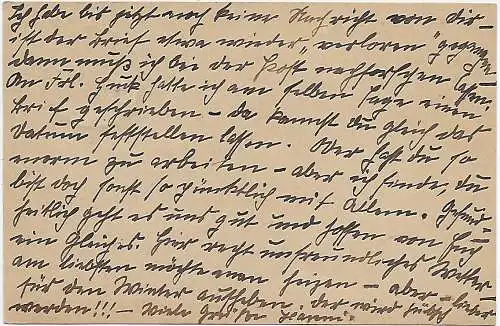 Ich habe bis jetzt noch keine Nachricht von Dir –
ist der Brief etwa wieder „verloren" gegangen
dann muß ich bei der Post nachforschen lassen.
An Frl. Huck hatte ich am selben Tage einen
Brief geschrieben – da kannst Du gleich das
Datum feststellen lassen. Oder hast Du so
enorm zu arbeiten – aber ich finde, Du
bist doch sonst so pünktlich mit Allem. Gesund-
heitlich geht es uns gut und hoffen von Euch
ein Gleiches. Hier recht unfreundliches Wetter –
am liebsten möchte man heizen – aber – lieber
für den Winter aufheben. Der wird hübsch
werden!!! – Viele Grüße